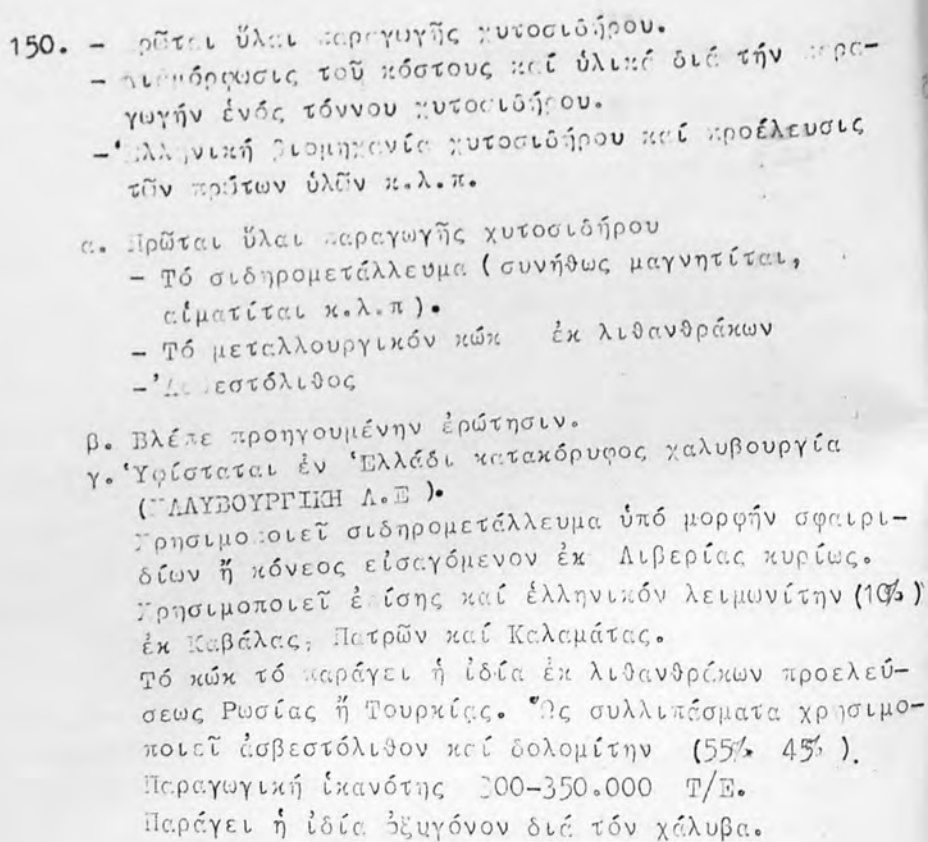 150. - Πρῶται ὕλαι παραγωγῆς χυτοσιδήρου.
- Διαμόρφωσις τοῦ κόστους καί ὑλικά διά τήν παρα-
γωγήν ἑνός τόννου χυτοσιδήρου.
-Ἑλληνική βιομηχανία χυτοσιδήρου καί προέλευσις
τῶν πρώτων ὑλῶν κ.λ.π.
α. Πρῶται ὕλαι παραγωγῆς χυτοσιδήρου
- Τό σιδηρομετάλλευμα (συνήθως μαγνητίται,
αἱματίται κ.λ.π).
- Τό μεταλλουργικόν κώκ ἐκ λιθανθράκων
-Ἀσβεστόλιθος
β. Βλέπε προηγουμένην ἐρώτησιν.
γ. Ὑφίσταται ἐν Ἑλλάδι κατακόρυφος χαλυβουργία
(ΧΑΛΥΒΟΥΡΓΙΚΗ Α.Ε ).
Χρησιμοποιεῖ σιδηρομετάλλευμα ὑπό μορφήν σφαιρι-
δίων ἤ κόνεος εἰσαγόμενον ἐκ Λιβερίας κυρίως.
Χρησιμοποιεῖ ἐπίσης καί ἑλληνικόν λειμωνίτην (10% )
ἐκ Καβάλας, Πατρῶν καί Καλαμάτας.
Τό κώκ τό παράγει ἡ ἰδία ἐκ λιθανθράκων προελεύ-
σεως Ρωσίας ἤ Τουρκίας. Ὡς συλλιπάσματα χρησιμο-
ποιεῖ ἀσβεστόλιθον καί δολομίτην (55% 45% ).
Παραγωγική ἱκανότης 300-350.000 Τ/Ε.
Παράγει ἡ ἰδία ὀξυγόνον διά τόν χάλυβα.